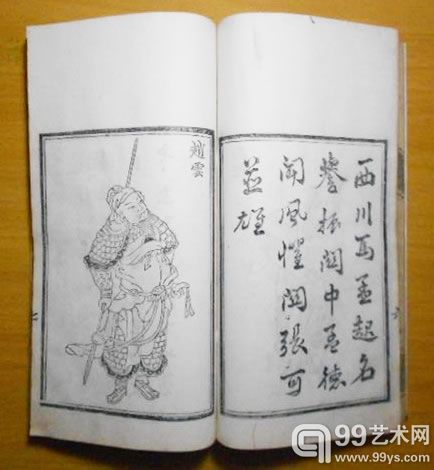 西川馬孟起名
譽振關中孟德
聞風懼關張可
並雄
趙雲
99艺术网
www.99ys.com